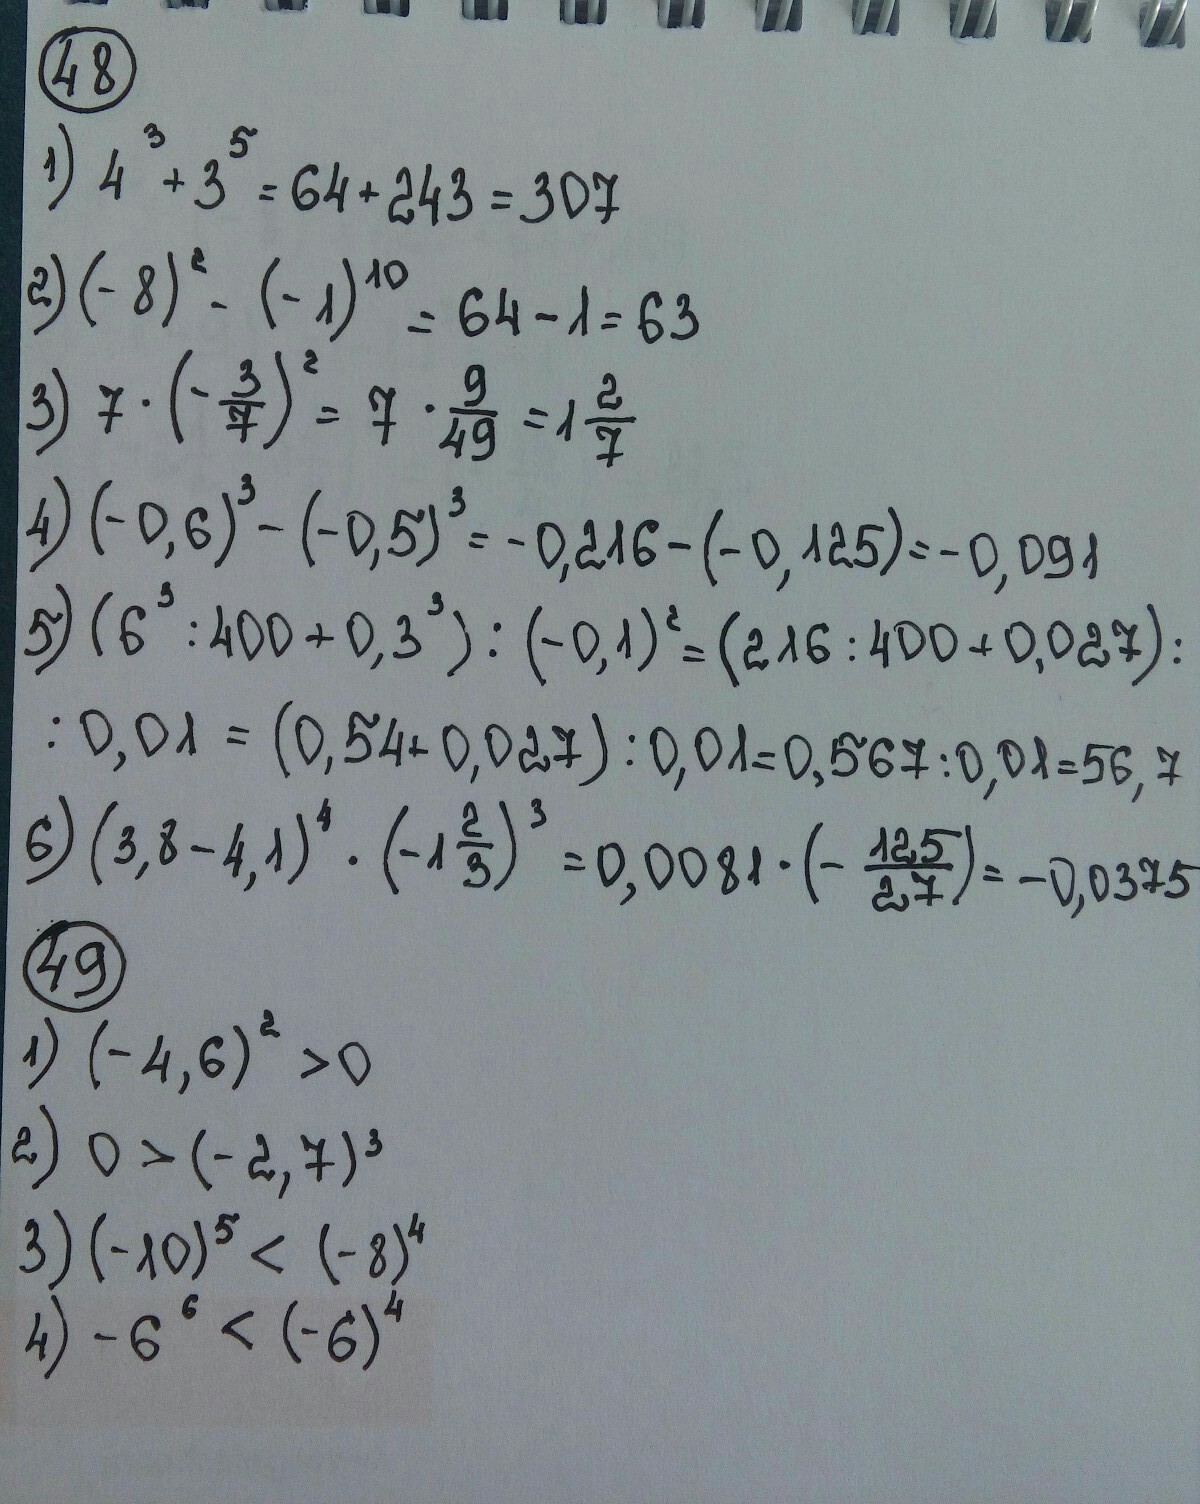 48
1) 4³ + 3⁵ = 64 + 243 = 307
2) (-8)² - (-1)¹⁰ = 64 - 1 = 63
3) 7 · (-3/7)² = 7 · 9/49 = 1 2/7
4) (-0,6)³ - (-0,5)³ = -0,216 - (-0,125) = -0,091
5) (6³ : 400 + 0,3³) : (-0,1)² = (216 : 400 + 0,027) :
: 0,01 = (0,54 + 0,027) : 0,01 = 0,567 : 0,01 = 56,7
6) (3,8 - 4,1)⁴ · (-1 2/3)³ = 0,0081 · (-125/27) = -0,0375
49
1) (-4,6)² > 0
2) 0 > (-2,7)³
3) (-10)⁵ < (-8)⁴
4) -6⁶ < (-6)⁴